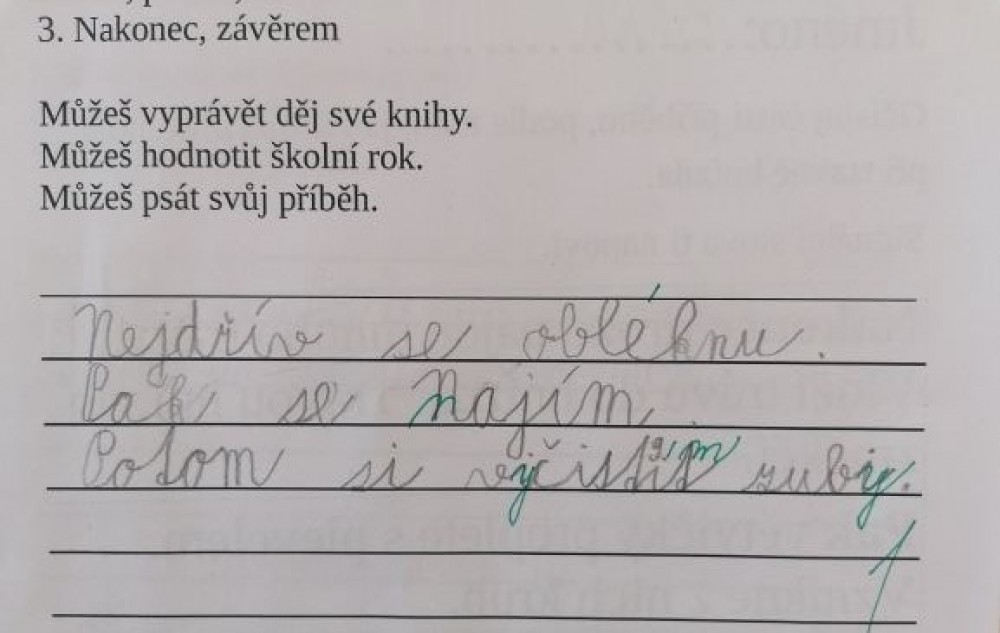 3. Nakonec, závěrem
Můžeš vyprávět děj své knihy.
Můžeš hodnotit školní rok.
Můžeš psát svůj příběh.
Nejdřív se obléknu.
Pak se najím.
Potom si vyčistím zuby.